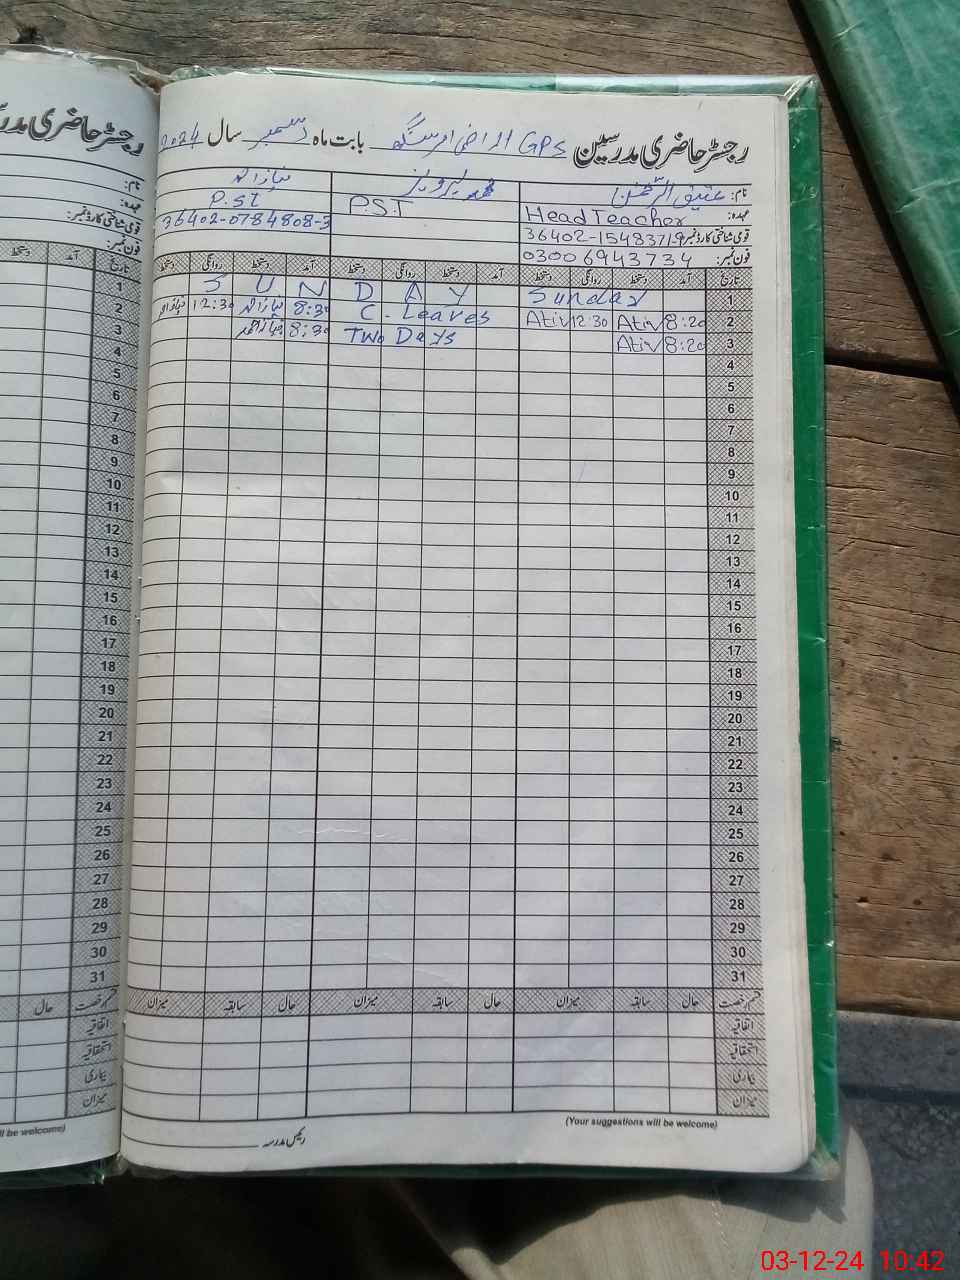 رجسٹر حاضری مدرسین GPS اراضی امر سنگھ بابت ماہ دسمبر سال 2024
نام: عتیق الرحمٰن محمد پرویز نیاز احمد
عہدہ: Head Teacher P.S.T P.ST
قومی شناختی کارڈ نمبر: 36402-1548371-9 36402-0784808-3
فون نمبر: 03006943734
تاریخ آمد دستخط روانگی دستخط آمد دستخط روانگی دستخط آمد دستخط روانگی دستخط
1 Sunday SUNDAY
2 8:20 Ativ 12:30 Ativ C. Leaves 8:30 نیاز احمد 12:30 نیاز احمد
3 8:20 Ativ Two Days 8:30 نیاز احمد
4
5
6
7
8
9
10
11
12
13
14
15
16
17
18
19
20
21
22
23
24
25
26
27
28
29
30
31
قسم رخصت حال سابقہ میزان حال سابقہ میزان حال سابقہ میزان
اتفاقیہ
استحقاقیہ
بیماری
میزان
(Your suggestions will be welcome)
رئیس مدرسہ
رجسٹر حاضری مدر
نام:
عہدہ:
قومی شناختی کارڈ نمبر:
فون نمبر:
تاریخ آمد دستخط
1
2
3
4
5
6
7
8
9
10
11
12
13
14
15
16
17
18
19
20
21
22
23
24
25
26
27
28
29
30
31
قسم رخصت حال
اتفاقیہ
استحقاقیہ
بیماری
میزان
ll be welcome)
03-12-24 10:42